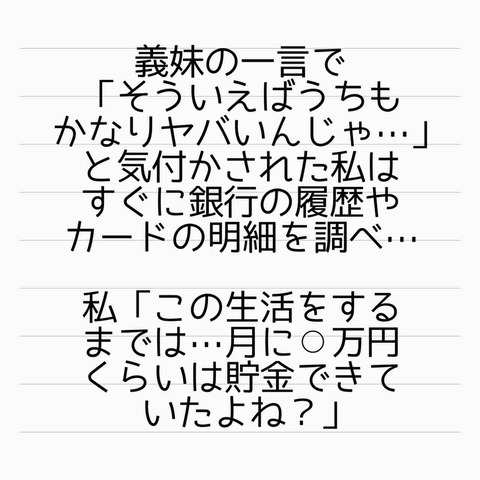 義妹の一言で
「そういえばうちも
かなりヤバいんじゃ…」
と気付かされた私は
すぐに銀行の履歴や
カードの明細を調べ…
私「この生活をする
までは…月に○万円
くらいは貯金できて
いたよね？」